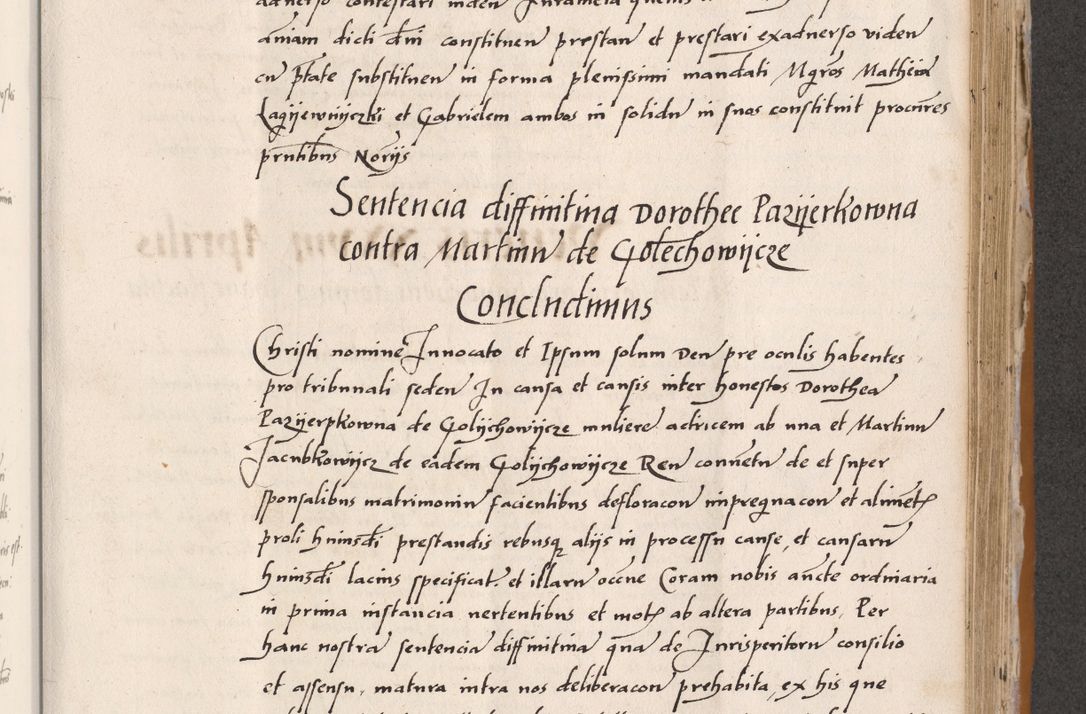 animam dicti dni constituen prestan et prestari exadverso viden
cu ptate substituen in forma plenissimi mandati Mgros Mathiia
Lagijewnijczki et Gabrielem ambos in solidu in suos constituit procures
prntibus Norijs
Sentencia diffinitiva Dorothee Pazijerkowna
contra Martinu de Golechowijcze
Concludimus
Christi nomine Invocato et Ipsum solum Deu pre oculis habentes
pro tribunali seden In causa et causis inter honestos Dorothea
Pazijerpkowna de Golijchowijcze muliere actricem ab una et Martinu
Jacubkowijcz de eadem Golijchowijcze Reu conuetu de et super
sponsalibus matrimoniu facientibus defloracon impregnacon et alimet
proli huiusdi prestandis rebusq alijs in processu cause et causaru
huiusdi lacius specificat et illaru occne Coram nobis ancte ordinaria
in prima instancia vertentibus et mot ab altera partibus. Per
hanc nostra sentencia diffinitiva qua de Jurisperitoru consilio
et assensu, matura intra nos deliberacon prehabita, ex his que